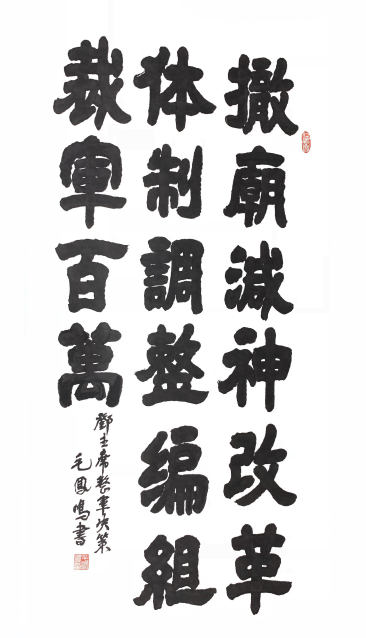 撤廟減神改革
体制調整编組
裁軍百萬
鄧主席整軍决策
毛鳳鳴書